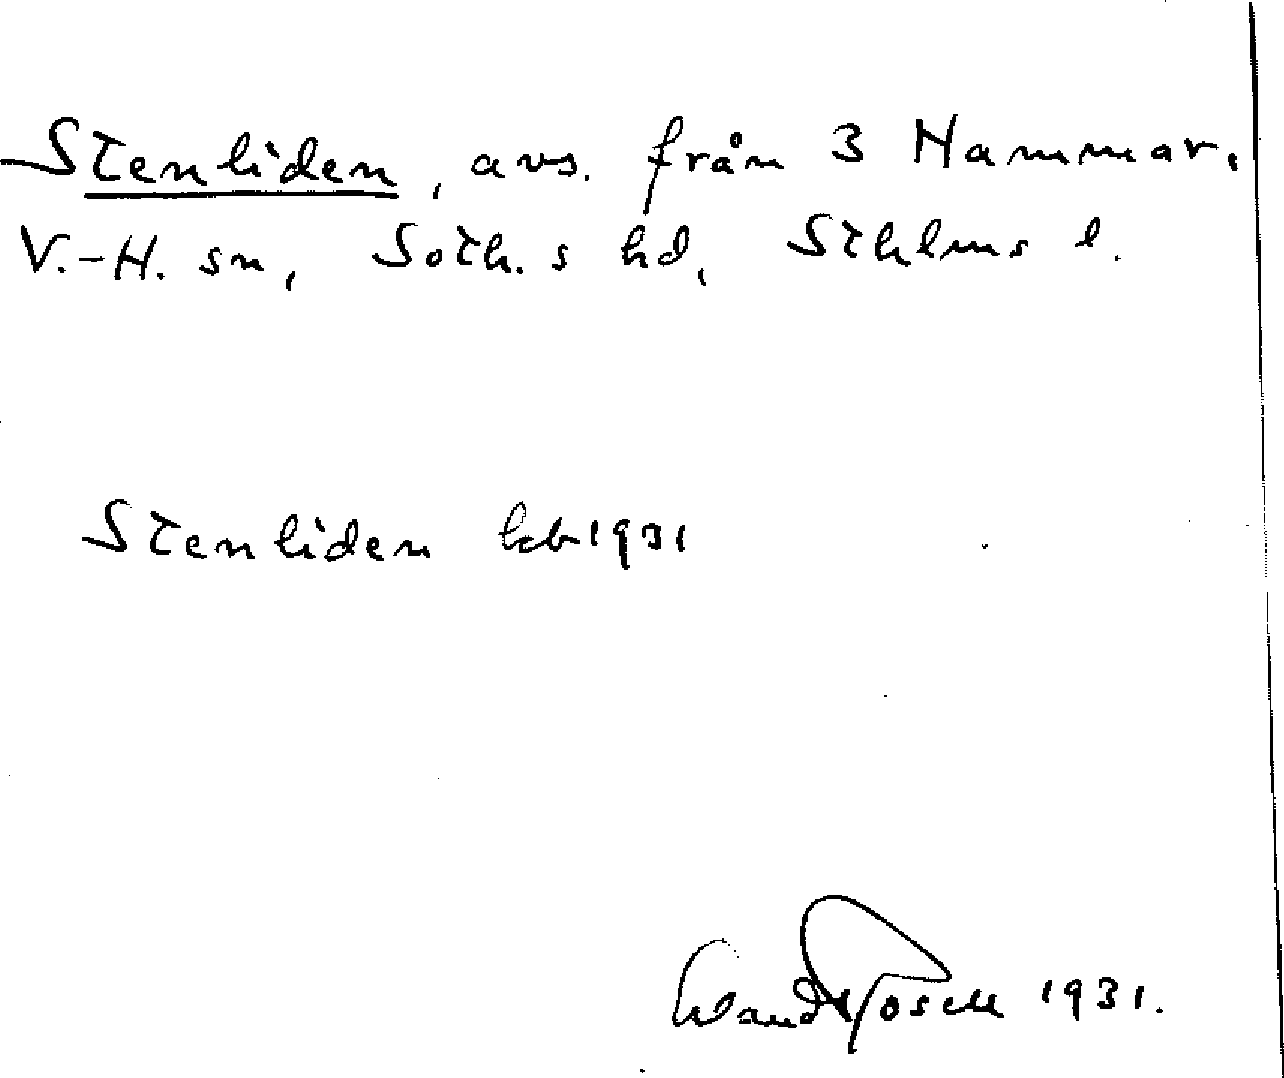 Stenliden, avs. från 3 Hammar,
V.-H. sn, Soth.s hd, Sthlms l.
Stenliden kb 1931
Erland Rosell 1931.